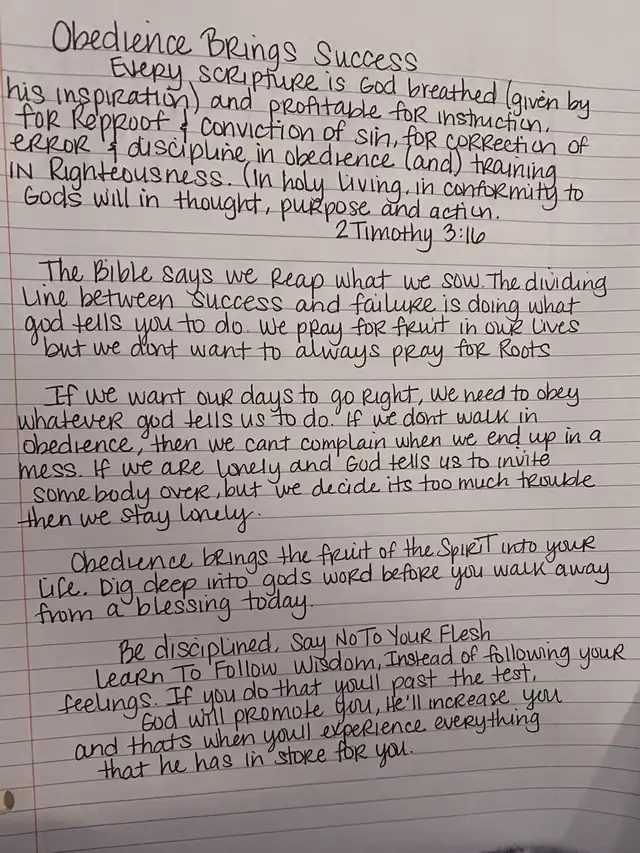 Obedience Brings Success
Every scripture is God breathed (given by
his inspiration) and profitable for instruction,
for Reproof & conviction of sin, for correction of
error & discipline in obedience (and) training
in Righteousness. (In holy living, in conformity to
Gods will in thought, purpose and action.
2 Timothy 3:16
The Bible says we Reap what we sow. The dividing
Line between success and failure is doing what
god tells you to do. We pray for fruit in our Lives
but we dont want to always pray for Roots
If we want our days to go Right, we need to obey
whatever god tells us to do. If we dont walk in
obedience, then we cant complain when we end up in a
mess. If we are lonely and God tells us to invite
somebody over, but we decide its too much trouble
then we stay lonely.
Obedience brings the fruit of the Spirit into your
Life. Dig deep into gods word before you walk away
from a blessing today.
Be disciplined, Say No To Your Flesh
Learn To Follow Wisdom, Instead of following your
feelings. If you do that youll past the test,
God will promote you, He'll increase you
and thats when youll experience everything
that he has in store for you.